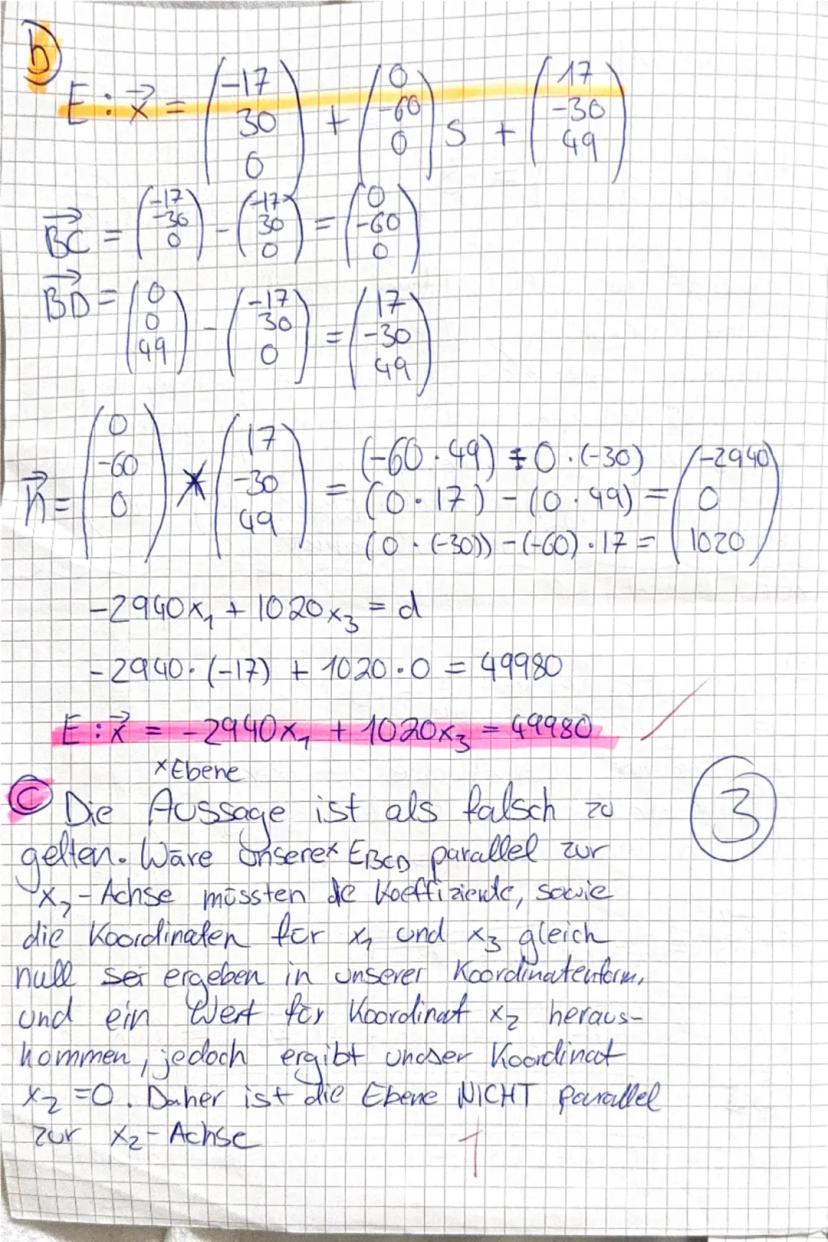 b)
E : x⃗ = (-17 30 0) + (0 -60 0) s + (17 -30 49)
BC⃗ = (-17 -30 0) - (-17 30 0) = (0 -60 0)
BD⃗ = (0 0 49) - (-17 30 0) = (17 -30 49)
n⃗ = (0 -60 0) × (17 -30 49) = (-60 · 49) - 0 · (-30)
(0 · 17) - (0 · 49) = (-2940 0 1020)
(0 · (-30)) - (-60) · 17 =
-2940x₁ + 1020x₃ = d
-2940 · (-17) + 1020 · 0 = 49980
E : x⃗ = -2940x₁ + 1020x₃ = 49980
×Ebene
c) Die Aussage ist als falsch zu
gelten. Wäre unsere× E_BCD parallel zur
x₂-Achse müssten de Koeffiziente, sowie
die Koordinaten für x₁ und x₃ gleich
null sei ergeben in unserer Koordinatenform,
und ein Wert für Koordinat x₂ heraus-
kommen, jedoch ergibt unser Koordinat
x₂ = 0. Daher ist die Ebene NICHT parallel
zur x₂-Achse
3
1